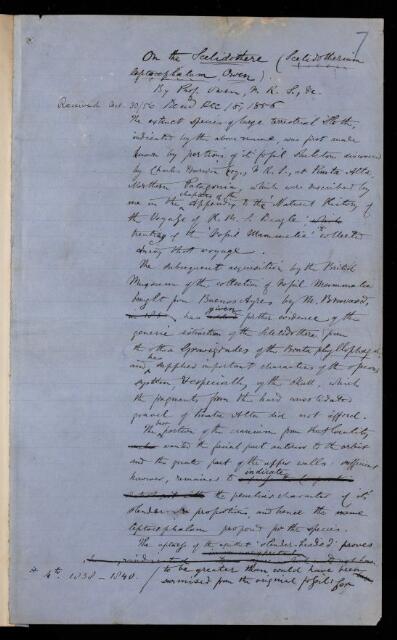 7
On the Scelidothere (Scelidotherium
leptocephalum, Owen).
By Prof. Owen, F. R. S., &c.
Received Oct. 30/56 Read Dec 18, 1856
The extinct species of large terrestrial Sloth,
indicated by the above name, was first made
known by portions of its fossil skeleton discovered
by Charles Darwin Esq., F. R. S., at Punta Alta,
Northern Patagonia, which were described by
me in the chapters of the Appendix to the Natural History of
the Voyage of H. M. S. Beagle, which
treating of the 'Fossil Mammalia' collected
during that voyage.
The subsequent acquisition by the British
Museum of the collection of Fossil Mammalia
brought from Buenos Ayres by M. Bravard,
has given further evidence of the
generic distinction of the Scelidothere from
the other Gravigrades of the Bruta phyllophaga,
and has supplied important characters of the
system, & especially of the skull, which
the fragments from the hard consolidated
gravel of Punta Alta did not afford.
The portion of the cranium from that locality
wanted the facial part anterior to the orbit
and the greater part of the upper walls: sufficient
however, remained to indicate
the peculiar character of its
slender proportions, and hence the name
leptocephalum proposed for the species.
The aptness of the epithet 'slender-headed' proves
to be greater than could have been
surmised from the original fossils; for
* 4to. 1838-1840.